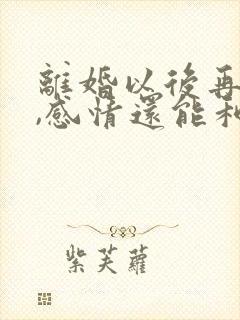 離婚以後再
,感情還能和
紫芙蘿